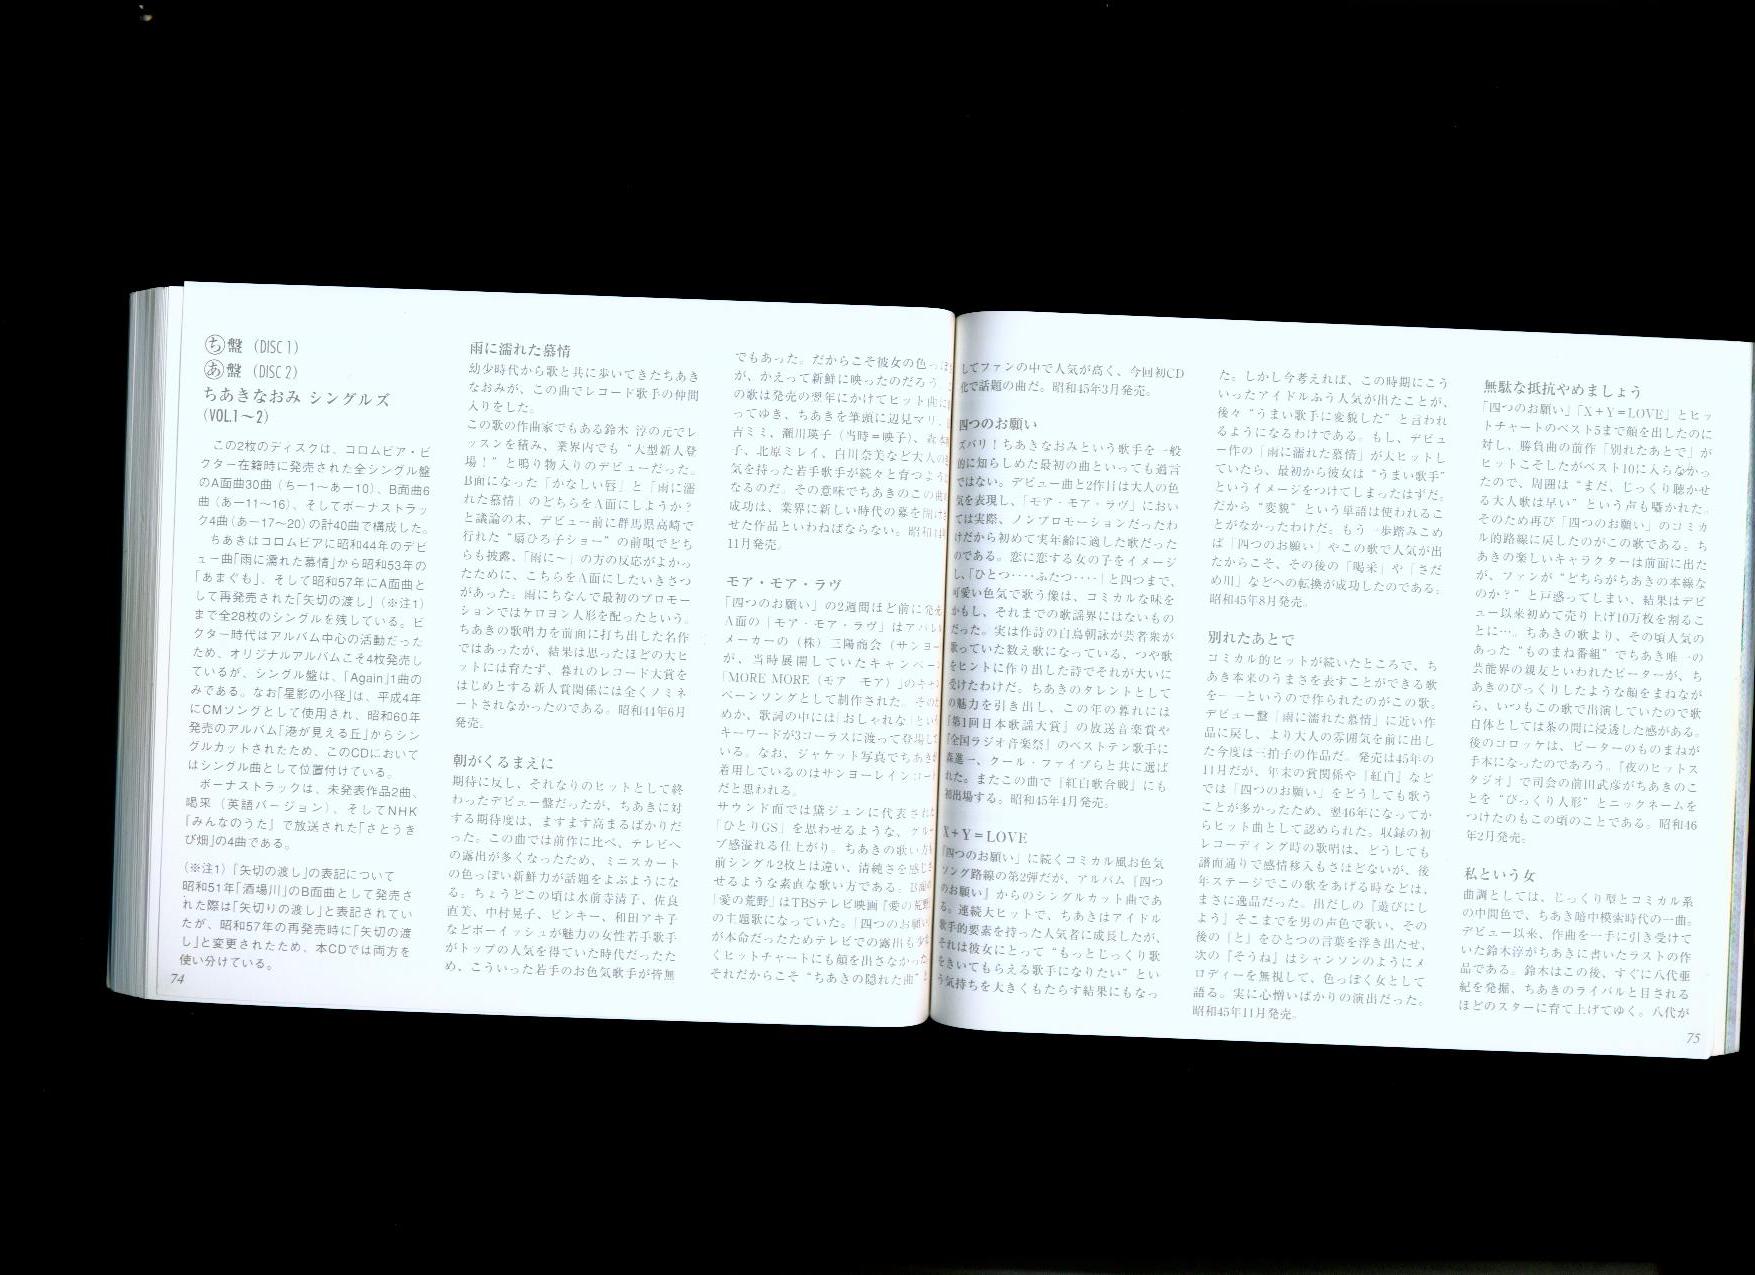 ち盤（DISC 1）
あ盤（DISC 2）
ちあきなおみ シングルズ
（VOL.1～2）
この2枚のディスクは、コロムビア・ビ
クター在籍時に発売された全シングル盤
のA面曲30曲（ちー1～あー10）、B面曲6
曲（あー11～16）、そしてボーナストラッ
ク4曲（あー17～20）の計40曲で構成した。
ちあきはコロムビアに昭和44年のデビ
ュー曲「雨に濡れた慕情」から昭和53年の
「あまぐも」、そして昭和57年にA面曲と
して再発売された「矢切の渡し」（※注1）
まで全28枚のシングルを残している。ビ
クター時代はアルバム中心の活動だった
ため、オリジナルアルバムこそ4枚発売し
ているが、シングル盤は、「Again」1曲の
みである。なお「星影の小径」は、平成4年
にCMソングとして使用され、昭和60年
発売のアルバム「港が見える丘」からシン
グルカットされたため、このCDにおいて
はシングル曲として位置付けている。
ボーナストラックは、未発表作品2曲、
喝采（英語バージョン）、そしてNHK
『みんなのうた』で放送された「さとうき
び畑」の4曲である。
（※注1）「矢切の渡し」の表記について
昭和51年「酒場川」のB面曲として発売さ
れた際は「矢切りの渡し」と表記されてい
たが、昭和57年の再発売時に「矢切の渡
し」と変更されたため、本CDでは両方を
使い分けている。
74
雨に濡れた慕情
幼少時代から歌と共に歩いてきたちあき
なおみが、この曲でレコード歌手の仲間
入りをした。
この歌の作曲家でもある鈴木 淳の元でレ
ッスンを積み、業界内でも“大型新人登
場！”と鳴り物入りのデビューだった。
B面になった「かなしい唇」と「雨に濡
れた慕情」のどちらをA面にしようか？
と議論の末、デビュー前に群馬県高崎で
行れた“扇ひろ子ショー”の前唄でどち
らも披露、「雨に～」の方の反応がよかっ
たために、こちらをA面にしたいきさつ
があった。雨にちなんで最初のプロモー
ションではケロヨン人形を配ったという。
ちあきの歌唱力を前面に打ち出した名作
ではあったが、結果は思ったほどの大ヒ
ットには育たず、暮れのレコード大賞を
はじめとする新人賞関係には全くノミネ
ートされなかったのである。昭和44年6月
発売。
朝がくるまえに
期待に反し、それなりのヒットとして終
わったデビュー盤だったが、ちあきに対
する期待度は、ますます高まるばかりだ
った。この曲では前作に比べ、テレビへ
の露出が多くなったため、ミニスカート
の色っぽい新鮮力が話題をよぶようにな
る。ちょうどこの頃は水前寺清子、佐良
直美、中村晃子、ピンキー、和田アキ子
などボーイッシュが魅力の女性若手歌手
がトップの人気を得ていた時代だったた
め、こういった若手のお色気歌手が皆無
でもあった。だからこそ彼女の色っぽ
が、かえって新鮮に映ったのだろう。こ
の歌は発売の翌年にかけてヒット曲に
ってゆき、ちあきを筆頭に辺見マリ、
吉ミミ、瀬川瑛子（当時＝映子）、森本
子、北原ミレイ、白川奈美など大人の
気を持った若手歌手が続々と育つよう
なるのだ。その意味でちあきのこの曲
成功は、業界に新しい時代の幕を開け
せた作品といわねばならない。昭和
11月発売。
モア・モア・ラヴ
「四つのお願い」の2週間ほど前に発売
A面の「モア・モア・ラヴ」はアパレル
メーカーの（株）三陽商会（サンヨー
が、当時展開していたキャンペー
「MORE MORE（モア モア）」のキャン
ペーンソングとして制作された。そのた
めか、歌詞の中には「おしゃれな」という
キーワードが3コーラスに渡って登場し
いる。なお、ジャケット写真でちあきが
着用しているのはサンヨーレインコー
だと思われる。
サウンド面では黛ジュンに代表され
「ひとりGS」を思わせるような、グルー
ブ感溢れる仕上がり。ちあきの歌い方
前シングル2枚とは違い、清純さを感じ
せるような素直な歌い方である。B面の
「愛の荒野」はTBSテレビ映画『愛の荒野
の主題歌になっていた。「四つのお願い
が本命だったためテレビでの露出も少
くヒットチャートにも顔を出さなかった
それだからこそ“ちあきの隠れた曲”
してファンの中で人気が高く、今回初CD
化で話題の曲だ。昭和45年3月発売。
四つのお願い
ズバリ！ちあきなおみという歌手を一般
的に知らしめた最初の曲といっても過言
ではない。デビュー曲と2作目は大人の色
気を表現し、「モア・モア・ラヴ」におい
ては実際、ノンプロモーションだったわ
けだから初めて実年齢に適した歌だった
のである。恋に恋する女の子をイメージ
し、「ひとつ‥‥ふたつ‥‥」と四つまで、
可愛い色気で歌う像は、コミカルな味を
かもし、それまでの歌謡界にはないもの
だった。実は作詩の白鳥朝詠が芸者衆が
歌っていた数え歌になっている、つや歌
をヒントに作り出した詩でそれが大いに
受けたわけだ。ちあきのタレントとして
の魅力を引き出し、この年の暮れには
『第1回日本歌謡大賞』の放送音楽賞や
『全国ラジオ音楽祭』のベストテン歌手に
森進一、クール・ファイブらと共に選ば
れた。またこの曲で『紅白歌合戦』にも
初出場する。昭和45年4月発売。
X＋Y＝LOVE
「四つのお願い」に続くコミカル風お色気
ソング路線の第2弾だが、アルバム『四つ
のお願い』からのシングルカット曲であ
る。連続大ヒットで、ちあきはアイドル
歌手的要素を持った人気者に成長したが、
それは彼女にとって“もっとじっくり歌
をきいてもらえる歌手になりたい”とい
う気持ちを大きくもたらす結果にもなっ
た。しかし今考えれば、この時期にこう
いったアイドルふう人気が出たことが、
後々“うまい歌手に変貌した”と言われ
るようになるわけである。もし、デビュ
ー作の「雨に濡れた慕情」が大ヒットし
ていたら、最初から彼女は“うまい歌手”
というイメージをつけてしまったはずだ。
だから“変貌”という単語は使われるこ
とがなかったわけだ。もう一歩踏みこめ
ば「四つのお願い」やこの歌で人気が出
たからこそ、その後の「喝采」や「さだ
め川」などへの転換が成功したのである。
昭和45年8月発売。
別れたあとで
コミカル的ヒットが続いたところで、ち
あき本来のうまさを表すことができる歌
を――というので作られたのがこの歌。
デビュー盤「雨に濡れた慕情」に近い作
品に戻し、より大人の雰囲気を前に出し
た今度は三拍子の作品だ。発売は45年の
11月だが、年末の賞関係や『紅白』など
では「四つのお願い」をどうしても歌う
ことが多かったため、翌46年になってか
らヒット曲として認められた。収録の初
レコーディング時の歌唱は、どうしても
譜面通りで感情移入もさほどないが、後
年ステージでこの歌をあげる時などは、
まさに逸品だった。出だしの『遊びにし
よう』そこまでを男の声色で歌い、その
後の『と』をひとつの言葉を浮き出たせ、
次の『そうね』はシャンソンのようにメ
ロディーを無視して、色っぽく女として
語る。実に心憎いばかりの演出だった。
昭和45年11月発売。
無駄な抵抗やめましょう
「四つのお願い」「X＋Y＝LOVE」とヒッ
トチャートのベスト5まで顔を出したのに
対し、勝負曲の前作「別れたあとで」が
ヒットこそしたがベスト10に入らなかっ
たので、周囲は“まだ、じっくり聴かせ
る大人歌は早い”という声も囁かれた。
そのため再び「四つのお願い」のコミカ
ル的路線に戻したのがこの歌である。ち
あきの楽しいキャラクターは前面に出た
が、ファンが“どちらがちあきの本線な
のか？”と戸惑ってしまい、結果はデビ
ュー以来初めて売り上げ10万枚を割るこ
とに…。ちあきの歌より、その頃人気の
あった“ものまね番組”でちあき唯一の
芸能界の親友といわれたピーターが、ち
あきのびっくりしたような顔をまねなが
ら、いつもこの歌で出演していたので歌
自体としては茶の間に浸透した感がある。
後のコロッケは、ピーターのものまねが
手本になったのであろう。『夜のヒットス
タジオ』で司会の前田武彦がちあきのこ
とを“びっくり人形”とニックネームを
つけたのもこの頃のことである。昭和46
年2月発売。
私という女
曲調としては、じっくり型とコミカル系
の中間色で、ちあき暗中模索時代の一曲。
デビュー以来、作曲を一手に引き受けて
いた鈴木淳がちあきに書いたラストの作
品である。鈴木はこの後、すぐに八代亜
紀を発掘、ちあきのライバルと目される
ほどのスターに育て上げてゆく。八代が
75